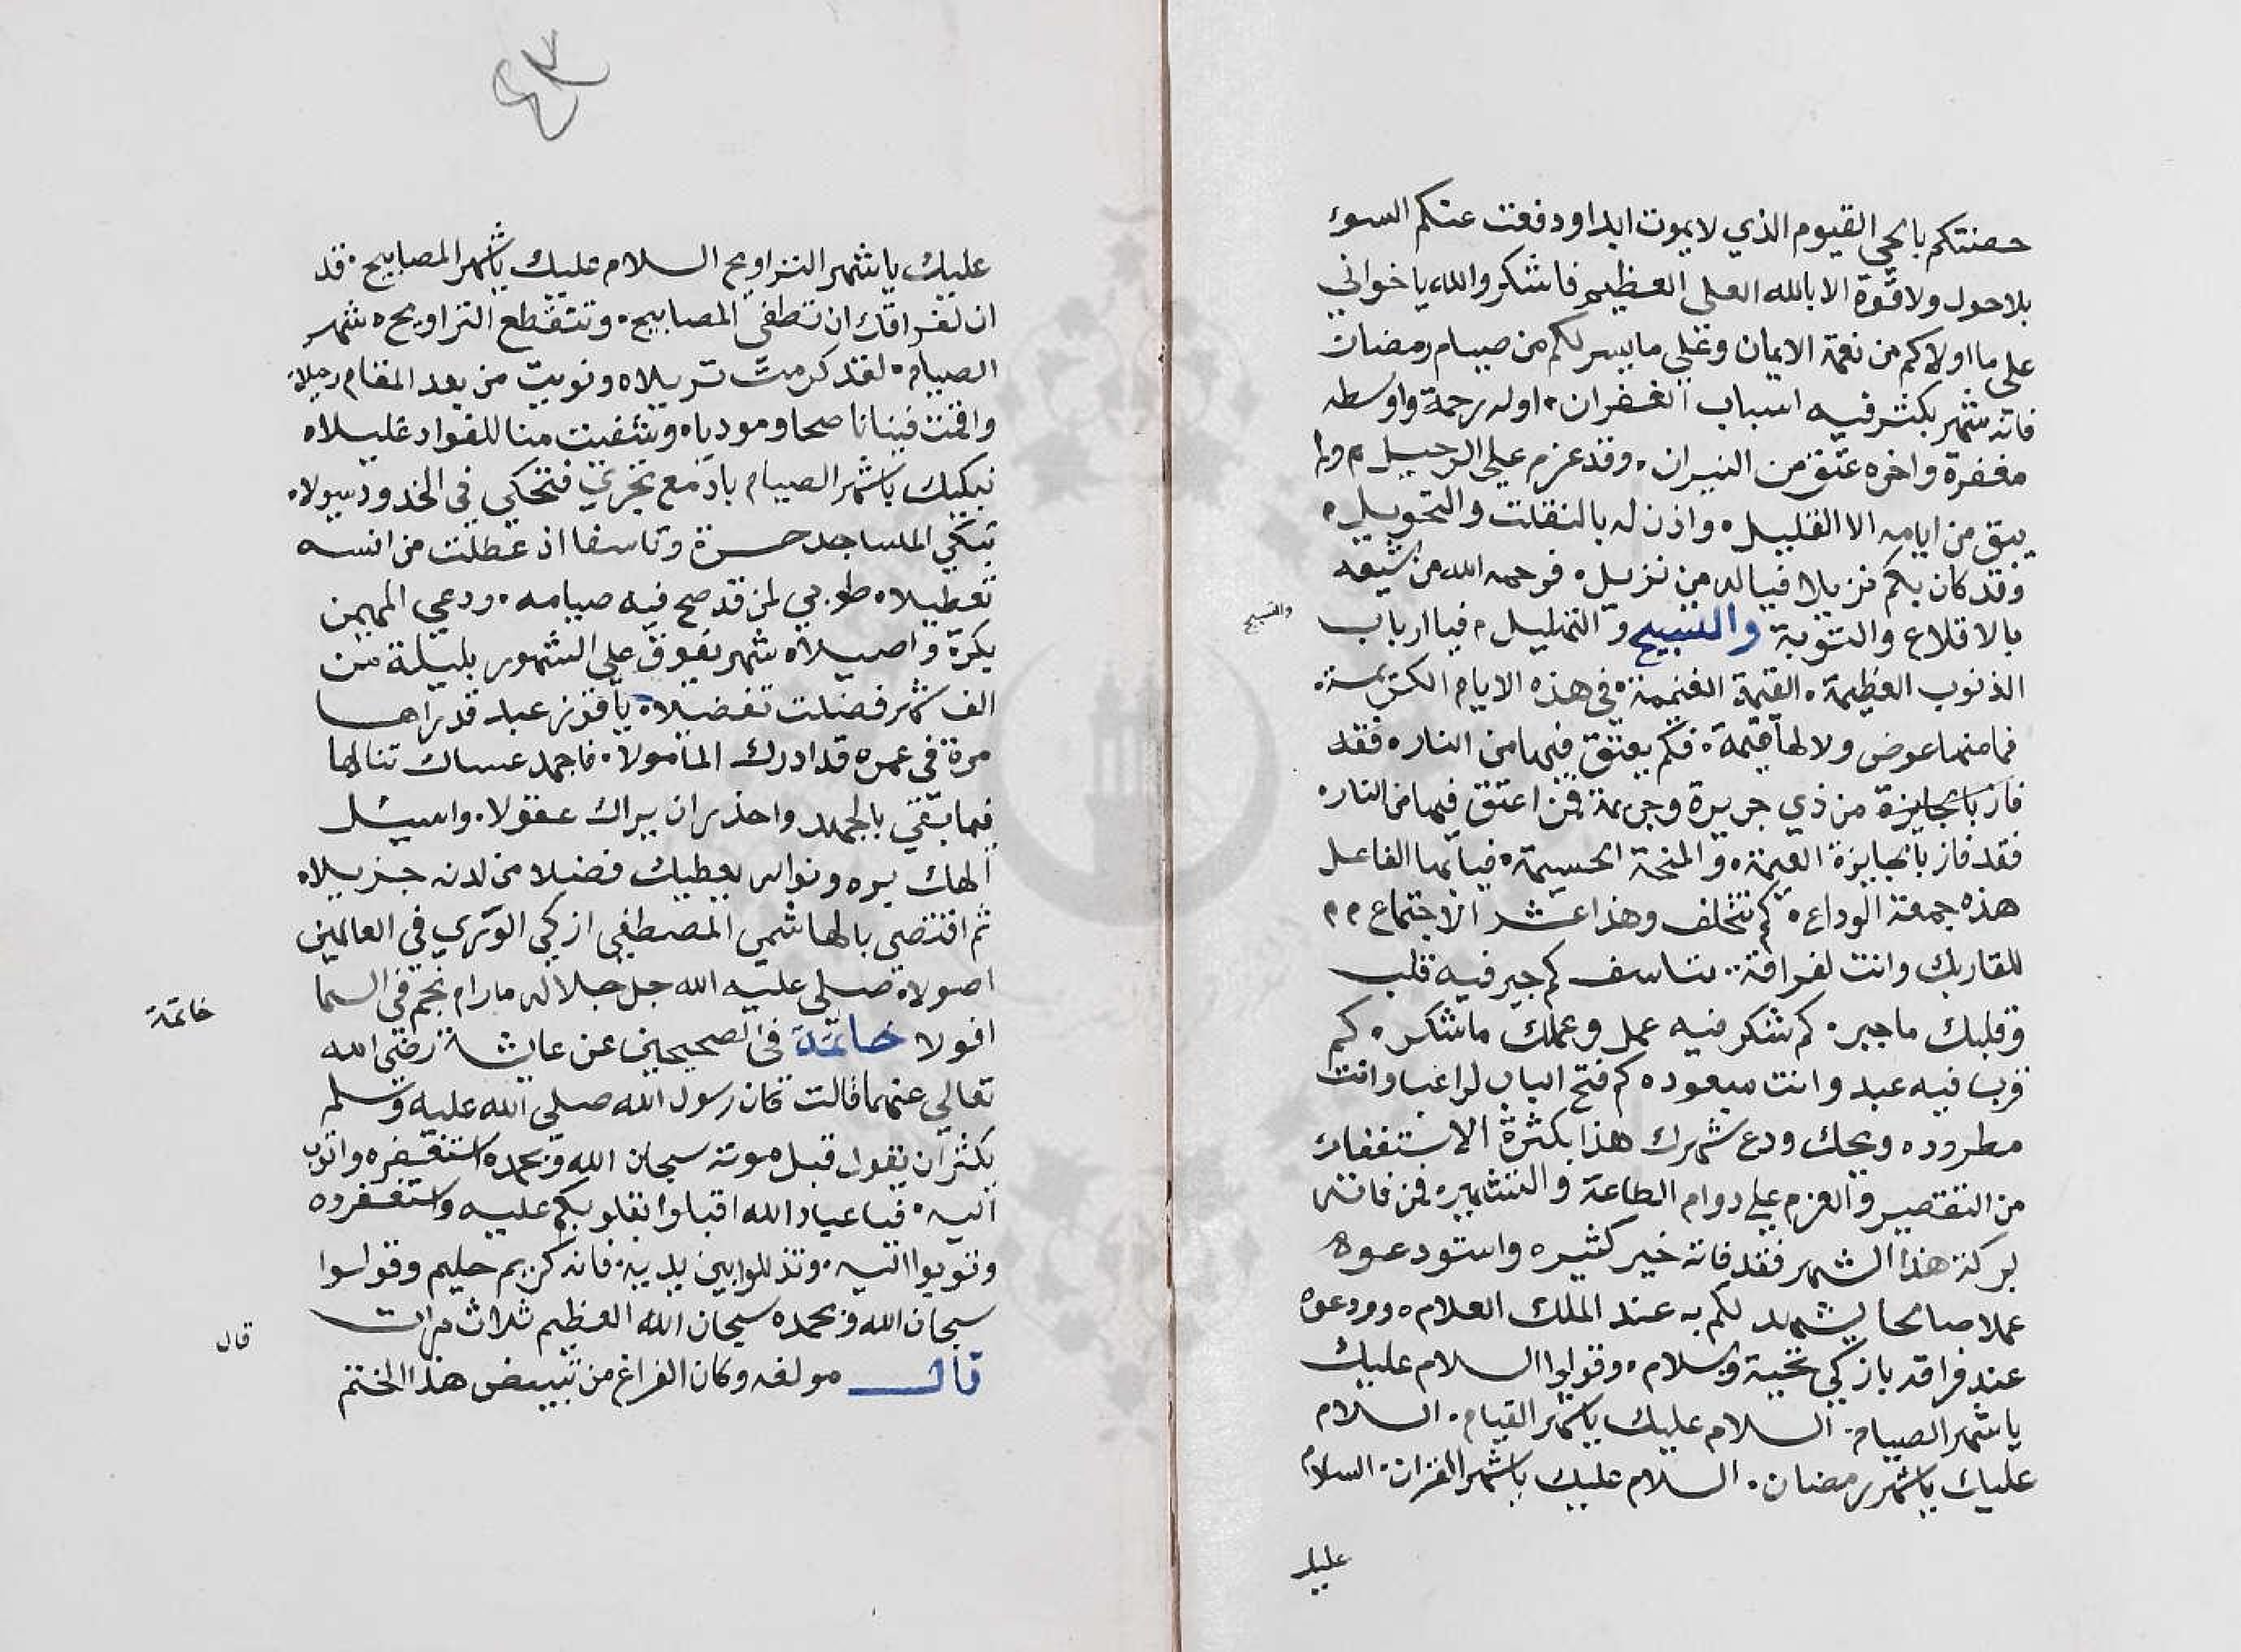 حصنتكم بالحي القيوم الذي لا يموت ابدا ودفعت عنكم السوء
بلا حول ولا قوة الا بالله العلي العظيم فاشكروا الله يا خواني
على ما اولاكم من نعمة الايمان وعلي ما يسر لكم من صيام رمضان
فانه شهر يكثر فيه اسباب الغفران، اوله رحمة واوسطه
مغفرة واخره عتق من النيران، وقد عزم علي الرحيل، ولم
يبق من ايامه الا القليل، واذن له بالنقلت والتحويل،
وقد كان بكم نزيلا فيا له من نزيل، فرحمه الله من شيعه
بالاقلاع والتوبة والتسبيح والتهليل، فيا ارباب
والتسبيح
الذنوب العظيمة، الغنيمة الغنيمة، في هذه الايام الكريمة،
فما منها عوض ولا لها قيمة، فكم يعتق فيها من النار، فقد
فاز بالجايزة من ذي جريرة وجريمة فمن اعتق فيها من النار،
فقد فاز بالجايزة العيمة، والمنحة الجسيمة، فيا ايها الغافل
هذه جمعة الوداع، كم تتخلف وهذا عشر الاجتماع
للقا ربك وانت لفراقه، تتاسف كم جبر فيه قلب
وقلبك ما جبر، كم شكر فيه عمل وعملك ما شكر، كم
قرب فيه عبد وانت مبعود، كم فتح الباب لراغب وانت
مطرود، ويحك ودع شهرك هذا بكثرة الاستغفار
من التقصير والعزم علي دوام الطاعة والتشمير، فمن فاتته
بركة هذا الشهر فقد فاته خير كثير، واستودعوه
عملا صالحا يشهد لكم به عند الملك العلام، وودعوه
عند فراقه بازكي تحية وسلام، وقولوا السلام عليك
يا شهر الصيام، السلام عليك يا شهر القيام، السلام
عليك يا شهر رمضان، السلام عليك يا شهر القران، السلام
عليك
٤٧
عليك يا شهر التراويح السلام عليك يا شهر المصابيح، قد
ان لفراقك ان تطفى المصابيح، وتنقطع التراويح، شهر
الصيام، لقد كرمت نزيلا، ونويت من بعد المقام رحيلا،
واقمت فينا ناصحا ومودبا، وشفيت منا للفواد غليلا،
نبكيك يا شهر الصيام بادمع تجري فتحكي في الخدود سيولا،
تبكي المساجد حسرة وتاسفا اذ عطلت من انسه
تعطيلا، طوبي لمن قد صح فيه صيامه، ودعي المهيمن
بكرة واصيلا، شهر يفوق علي الشهور بليلة من
الف شهر فضلت تفضيلا، يا فوز عبد قد يراها
مرة في عمره قد ادرك المامولا، فاجهد عساك تنالها
فيما بقي بالجهد واحذر ان يراك غفولا، واسيل
الهك بره ونواله يعطيك فضلا من لدنه جزيلا،
ثم اقتضي بالهاشمي المصطفي ازكي الوري في العالمين
اصولا، صلي عليه الله جل جلاله ما رام نجم في السما
افولا خاتمة في الصحيحين عن عايشة رضي الله
خاتمة
تعالي عنها قالت كان رسول الله صلي الله عليه وسلم
يكثر ان يقول قبل موته سبحان الله وبحمده استغفره واتوب
اليه، فيا عباد الله اقبلوا بقلوبكم عليه واستغفروه
وتوبوا اليه، وتذللوا بين يديه، فانه كريم حليم وقولوا
سبحان الله وبحمده سبحان الله العظيم ثلاث مرات
قال مولفه وكان الفراغ من تبييض هذا الختم
قال